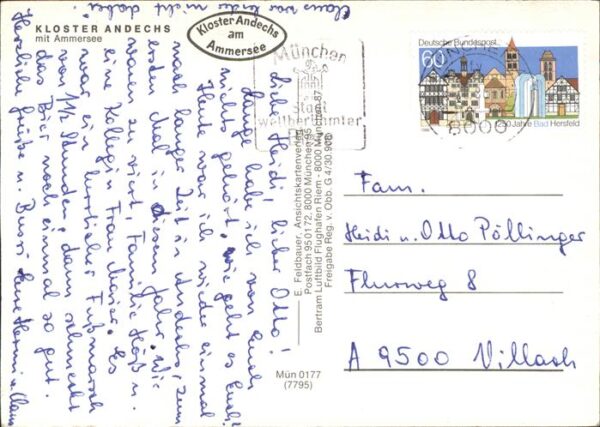 KLOSTER ANDECHS
mit Ammersee
Kloster Andechs
am
Ammersee
München
Stadt
weltberühmter
8000
Deutsche Bundespost
60
1250 Jahre Bad Hersfeld
Liebe Heidi! lieber Otto!
Lange habe ich von Euch
nichts gehört, wie geht es Euch?
Heute war ich wieder einmal
nach langer Zeit in Andechs, zum
ersten Mal in diesem Jahr. Wir
waren zu viert Familie u.
eine Kollegin Frau Maier. Es
war ein herrlicher Fußmarsch
von 1½ Stunden, dann schmeckt
das Bier noch einmal so gut.
Herzliche Grüße u. Bussi Eure Hermi u. Claus
Claus war leider nicht dabei.
E. Feldbauer, Ansichtskartenverlag
Postfach 95 01 72, 8000 München 95
Bertram Luftbild Flughafen Riem - 8000 München 87
Freigabe Reg. v. Obb. G 4/30.906
Mün 0177
(7795)
Fam.
Heidi u. Otto Pöllinger
Flurweg 8
A 9500 Villach